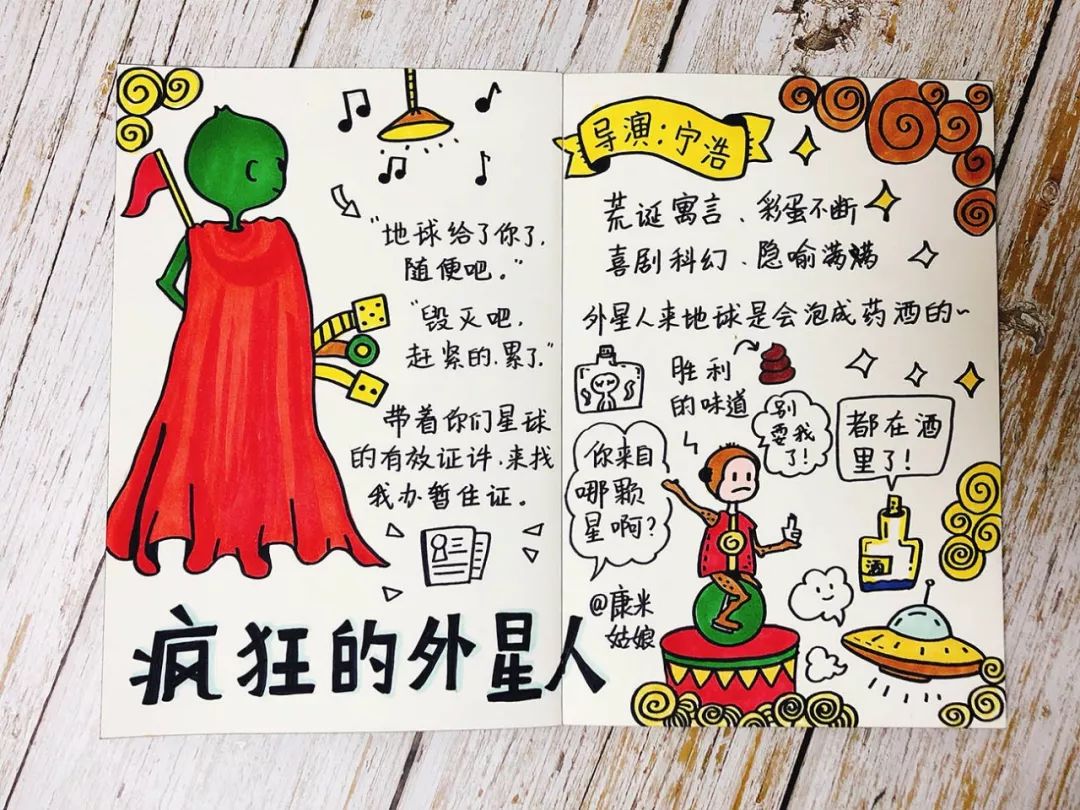 "地球给了你了,
随便吧。"
"毁灭吧,
赶紧的.累了."
带着你们星球
的有效证件.来找
我办暂住证。
疯狂的外星人
导演:宁浩
荒诞寓言、彩蛋不断
喜剧科幻、隐喻满满
外星人来地球是会泡成药酒的~
胜利
的味道
别
耍我
了!
都在酒
里了!
你来自
哪颗
星啊?
酒
@康米
姑娘